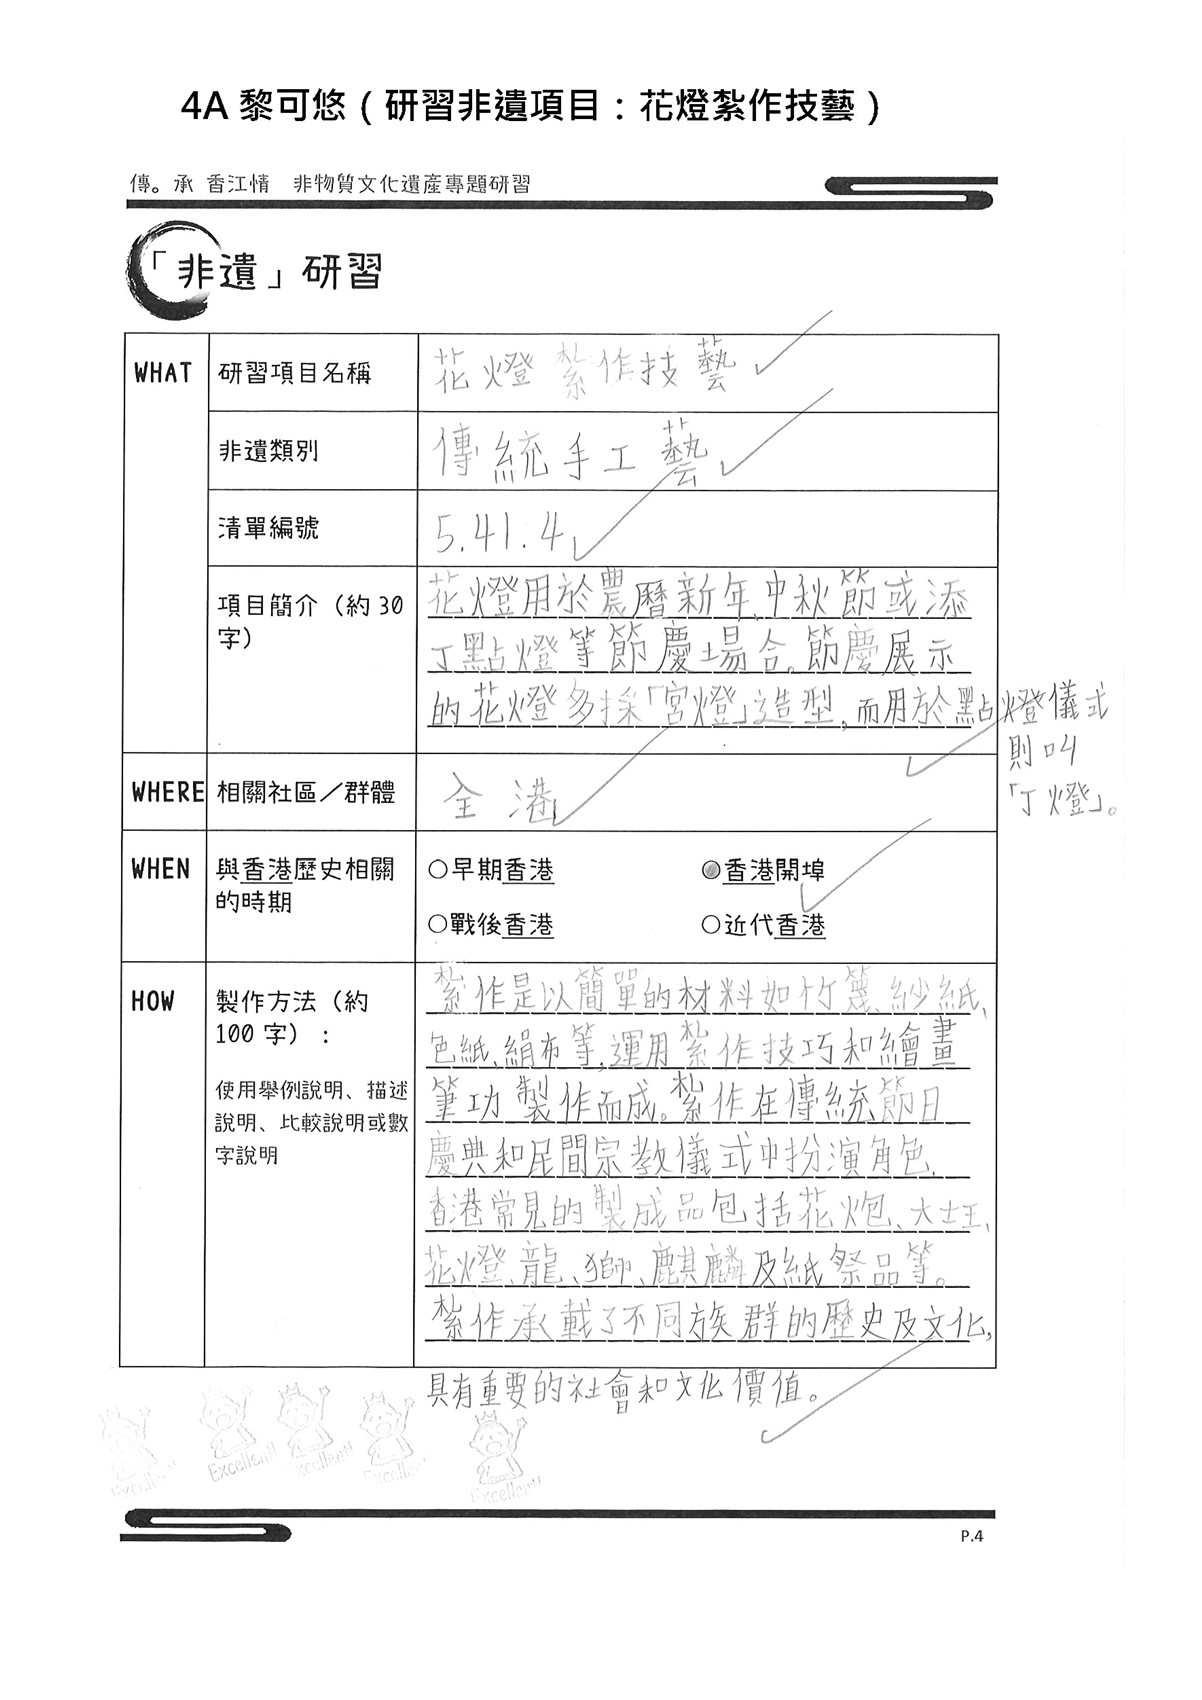 4A 黎可悠（研習非遺項目：花燈紮作技藝）
傳。承 香江情　非物質文化遺產專題研習
「非遺」研習
WHAT
研習項目名稱
花燈紮作技藝
非遺類別
傳統手工藝
清單編號
5.41.4
項目簡介（約 30
字）
花燈用於農曆新年、中秋節或添
丁點燈等節慶場合。節慶展示
的花燈多採「宮燈」造型，而用於點燈儀式
則叫
「丁燈」。
WHERE
相關社區／群體
全港
WHEN
與香港歷史相關
的時期
○早期香港
●香港開埠
○戰後香港
○近代香港
HOW
製作方法（約
100 字）：
使用舉例說明、描述
說明、比較說明或數
字說明
紮作是以簡單的材料如竹篾、紗紙、
色紙、絹布等，運用紮作技巧和繪畫
筆功製作而成。紮作在傳統節日
慶典和民間宗教儀式中扮演角色，
香港常見的製成品包括花炮、大士王、
花燈、龍、獅、麒麟及紙祭品等。
紮作承載了不同族群的歷史及文化，
具有重要的社會和文化價值。
Excellent!
Excellent!
Excellent!
Excellent!
Excellent!
P.4